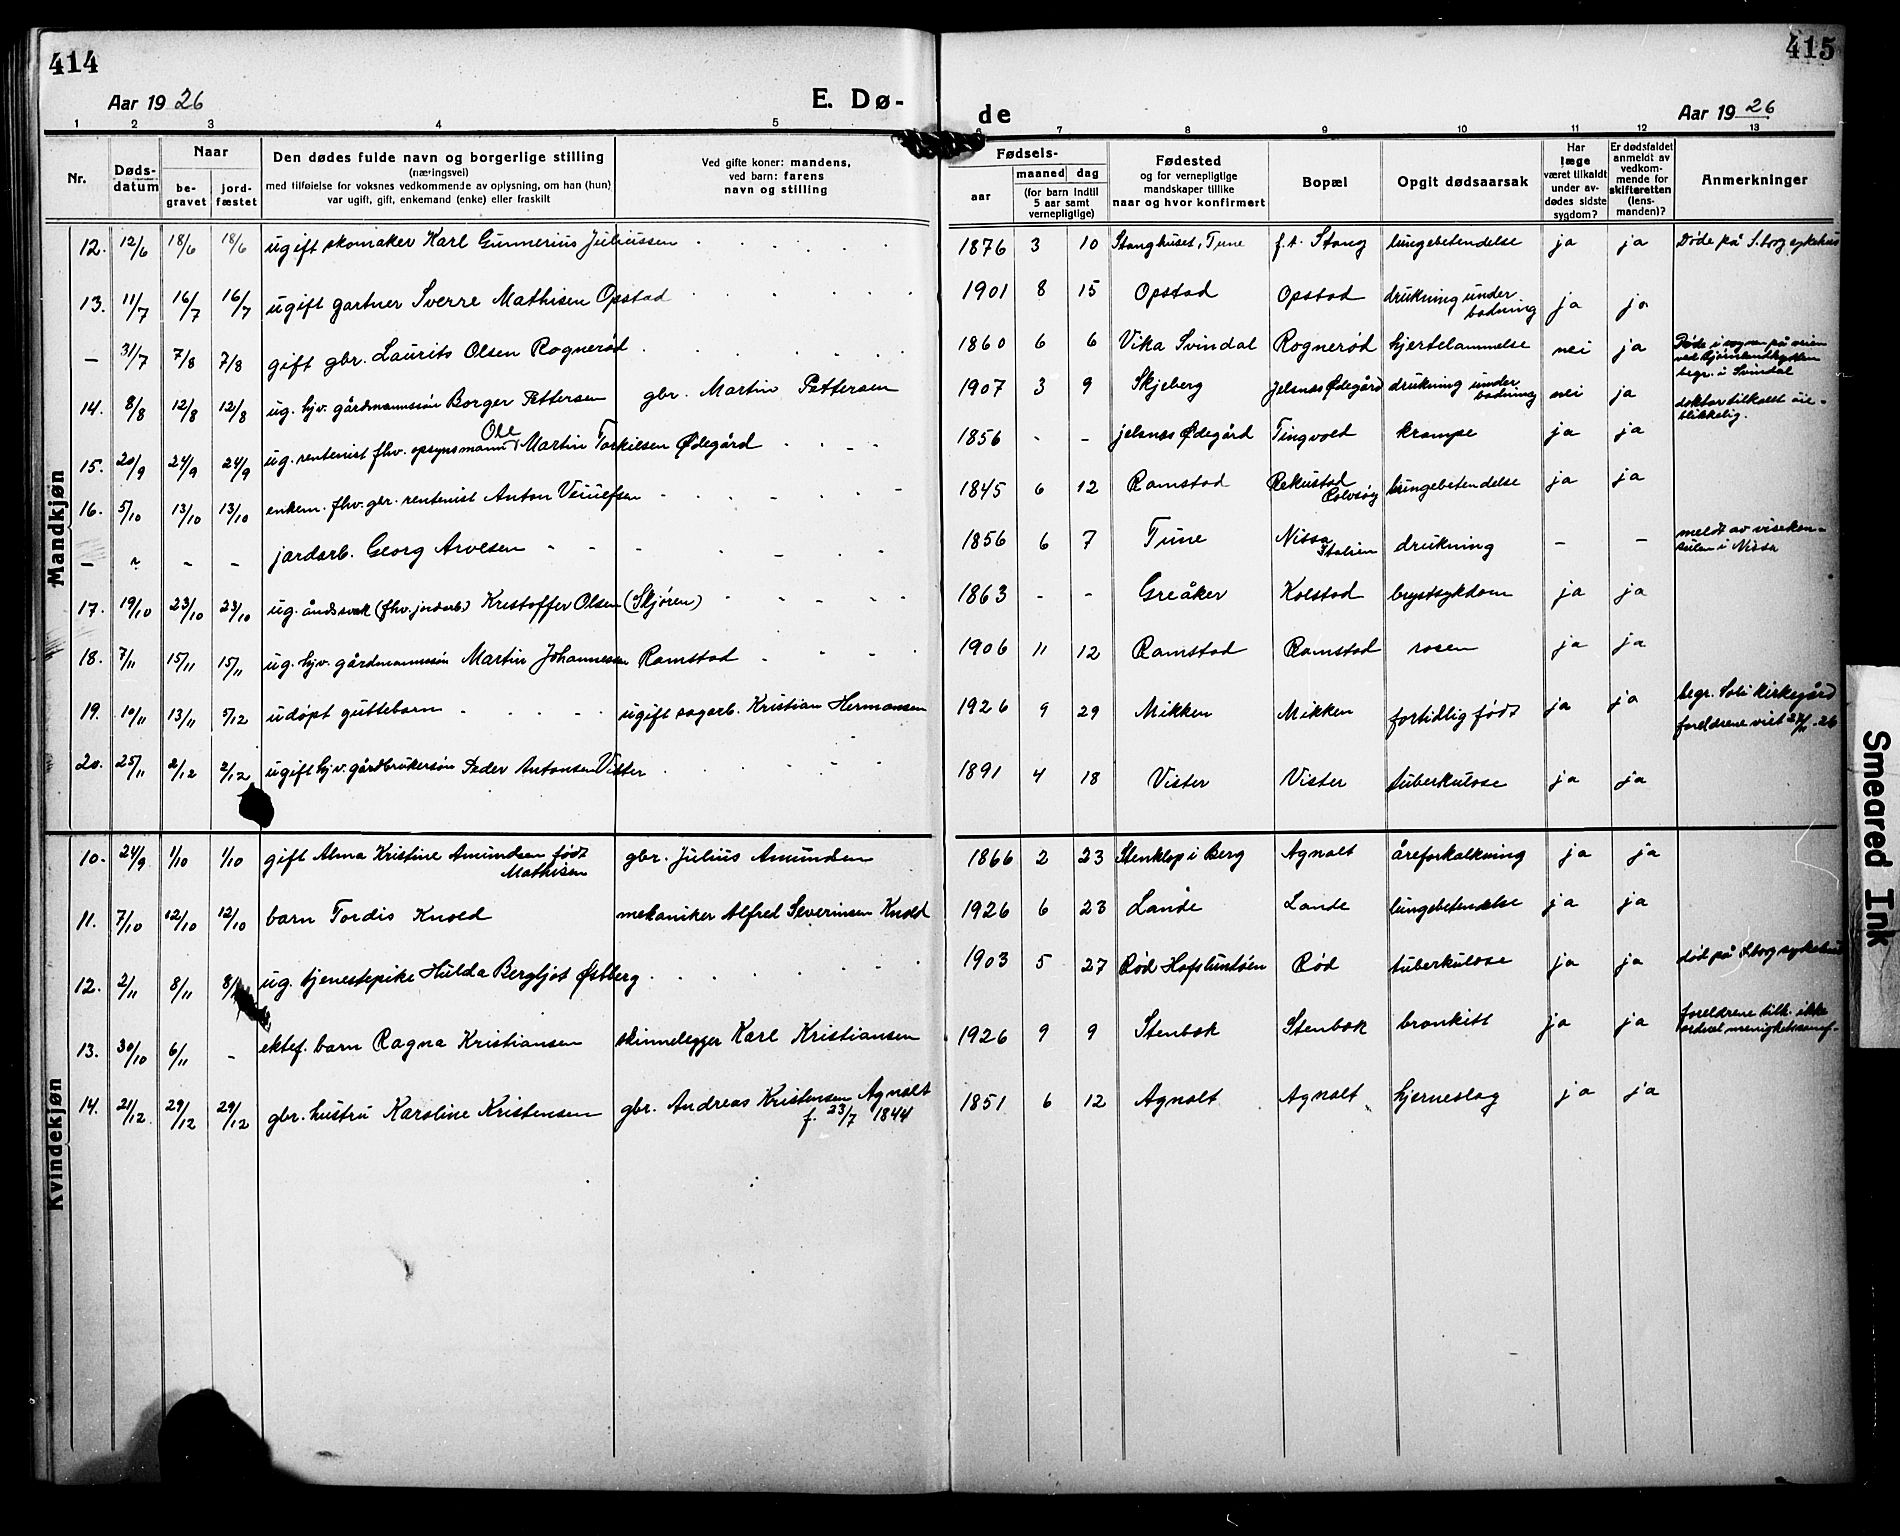 414
Aar 1926
E. Dø-
1 2 3 4 5
Nr. Døds-datum Naar be-gravet jord-fæstet
Den dødes fulde navn og borgerlige stilling
(næringsvei)
med tilføielse for voksnes vedkommende av oplysning, om han (hun)
var ugift, gift, enkemand (enke) eller fraskilt
Ved gifte koner: mandens,
ved barn: farens
navn og stilling
Mandkjøn
12. 12/6 18/6 18/6 ugift skomaker Karl Gunnerius Juliussen
13. 11/7 16/7 16/7 ugift gartner Sverre Mathisen Opstad
— 31/7 7/8 7/8 gift gbr. Laurits Olsen Rognerød
14. 8/8 12/8 12/8 ug. hjv. gårdmannssøn Borger Pettersen gbr. Martin Pettersen
15. 20/9 24/9 24/9 ug. rentenist fhv. opsynsmann Ole Martin Torkilsen Ødegård
16. 5/10 13/10 13/10 enkem. fhv. gbr. rentenist Anton
— " - - jordarb. Georg Arvesen
17. 19/10 23/10 23/10 ug. åndssvak (fhv. jordarb.) Kristoffer Olsen (Skjøren)
18. 7/11 15/11 15/11 ug. hjv. gårdmannssøn Martin Johannessen Ramstad
19. 10/11 13/11 5/12 udøpt guttebarn ugift sagarb. Kristian Hermansen
20. 25/11 2/12 2/12 ugift hjv. gårdbrukersøn Peder Antonsen Vister
Kvindekjøn
10. 24/9 1/10 1/10 gift Alma Kristine Amundsen født Mathisen gbr. Julius Amundsen
11. 7/10 12/10 12/10 barn Tordis Knold mekaniker Alfred Severinsen Knold
12. 2/11 8/11 8/ ug. tjenestepike Hulda Bergljot Østberg
13. 30/10 6/11 - ektef. barn Ragna Kristiansen skinnelegger Karl Kristiansen
14. 21/12 29/12 29/12 gbr. hustru Karoline Kristensen gbr. Andreas Kristensen Agnalt
f. 23/7 1844
415
de
Aar 1926
6 7 8 9 10 11 12 13
Fødsels-
aar maaned dag
(for barn indtil
5 aar samt
vernepligtige)
Fødested
og for vernepligtige
mandskaper tillike
naar og hvor konfirmert
Bopæl
Opgit dødsaarsak
Har
læge
været tilkaldt
under av-
dødes sidste
sygdom?
Er dødsfaldet
anmeldt av
vedkom-
mende for
skifteretten
(lens-
manden)?
Anmerkninger
1876 3 10 Stanghuset, Tune f.t. Stang lungebetendelse ja ja Døde på S.borg sykehus
1901 8 15 Opstad Opstad drukning under badning ja ja
1860 6 6 Vika Svindal Rognerød hjertelammelse nei ja Døde i sognet på veien
begr. i Svindal
1907 3 9 Skjeberg Jelsnes Ødegård drukning under badning nei ja doktor tilkalt øie-
blikkelig.
1856 - - Jelsnes Ødegård Tingvold krampe ja ja
1845 6 12 Ramstad Rekustad Rolvsøy lungebetendelse ja ja
1856 6 7 Tune Nissa Italien drukning — — meldt av visekon-
sulen i Nissa
1863 - - Greåker Kolstad brystsykdom ja ja
1906 11 12 Ramstad Ramstad rosen ja ja
1926 9 29 Mikken Mikken fortidlig født ja ja begr. Soli kirkegård
foreldrene viet 27/11 -26
1891 4 18 Vister Vister tuberkulose ja ja
1866 2 23 Stenklop i Berg Agnalt åreforkalkning ja ja
1926 6 23 Lande Lande lungebetendelse ja ja
1903 5 27 Rød Hafslundsøen Rød tuberkulose ja ja død på S.borg sykehus
1926 9 9 Stenbæk Stenbæk bronkitt ja ja foreldrene tilh. ikke
1851 6 12 Agnalt Agnalt hjerneslag ja ja
Smeared Ink